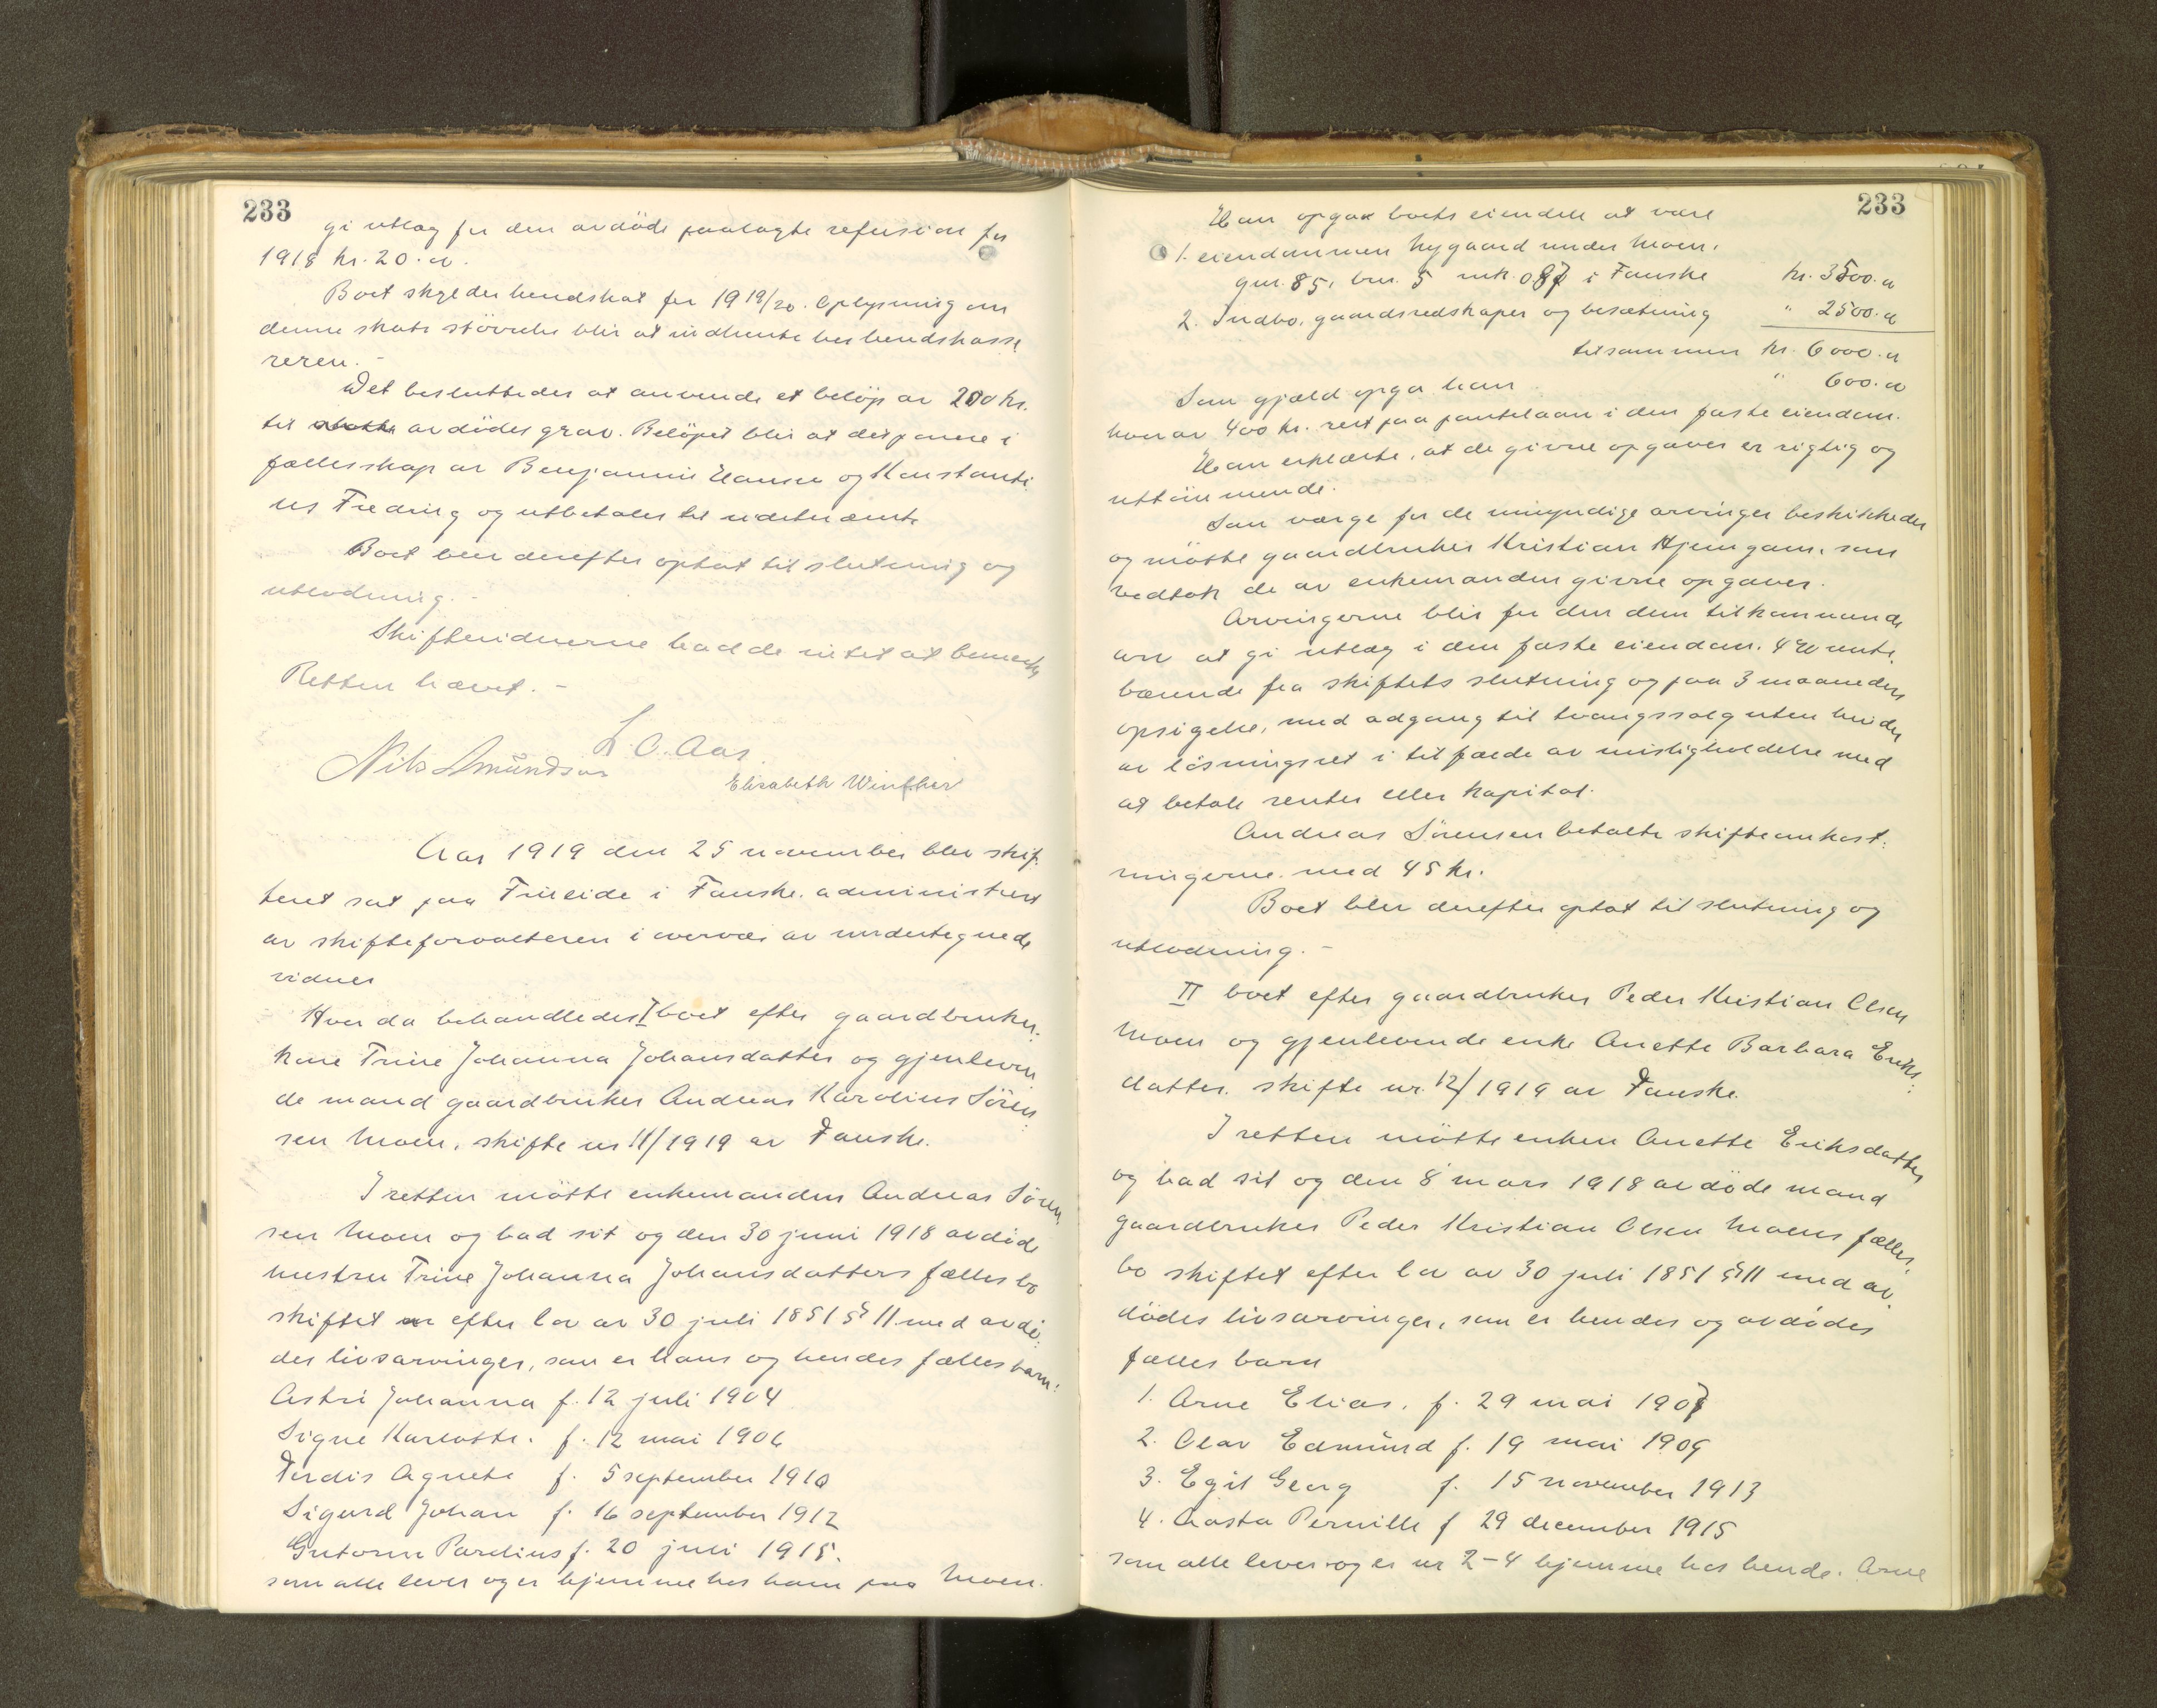 233
gi utlæg for den avdöde paalagte refusion for
1918 kr. 20.00.
Boet skylder herredskat for 1919/20. Oplysning om
denne skats störrelse blir at indhente hos herredskasse
reren.-
Det besluttedes at anvende et belöp av 200 kr.
til avdödes grav. Belöpet blir at disponere i
fællesskap av Benjamin Hansen og Konstanti
us og utbetales til
Boet blev derefter optat til slutning og
utlodning.-
Skiftevidnerne hadde intet at bemerke
Retten hævet.-
L. C. Aas.
Nils Amundsen
Elisabeth Winther
Aar 1919 den 25 november blev skif-
teret sat paa Finneide i Fauske, administrert
av skifteforvalteren i overvær av undertegnede
vidner
Hvor da behandledes I boet efter gaardbruker-
kone Trine Johanna Johansdatter og gjenleven
de mand gaardbruker Andreas Karolius Sören
sen Moen, skifte nr 11/1919 av Fauske.
I retten mötte enkemanden Andreas Sören
sen Moen og bad sit og den 30 juni 1918 avdöde
hustru Trine Johanna Johansdatters fællesbo
skiftet efter lov av 30 juli 1851 § 11 med avdö-
des livsarvinger, som er hans og hendes fælles barn:
Astri Johanna f. 12 juli 1904
Signe Karlotte. f. 12 mai 1906
Ferdis Agnete f. 5 september 1910
Sigurd Johan f. 16 september 1912
Gutorm Parelius f. 20 juli 1915.
som alle lever og er hjemme hos ham paa Moen.
233
Han opgav boets eiendele at være
1. eiendommen Nygaard under Moen,
gnr. 85, bnr. 5 mk. 087 i Fauske kr. 3500.00
2. Indbo, gaardsredskaper og besætning " 2500.00
tilsammen kr. 6000.00
Som gjæld opga han " 600.00
hvorav 400 kr. rest paa pantelaan i den faste eiendom.
Han erklærte, at de givne opgaver er rigtig og
uttömmende.
Som værge for de umyndige arvinger beskikkedes
og mötte gaardbruker Kristian Hjemgam, som
vedtok de av enkemanden givne opgaver.
Arvingerne blir for den dem tilkommende
arv at gi utlæg i den faste eiendom, 4% rente-
bærende fra skiftets slutning og paa 3 maaneders
opsigelse, med adgang til tvangssalg uten hinder
av lösningsret i tilfælde av misligholdelse med
at betale renter eller kapital.
Andreas Sörensen betalte skifteomkost-
ningerne med 45 kr.
Boet blev derefter optat til slutning og
utlodning.-
II boet efter gaardbruker Peder Kristian Olsen
Moen og gjenlevende enke Anette Barbara Eriks-
datter. skifte nr. 12/1919 av Fauske.
I retten mötte enken Anette Eriksdatter
og bad sit og den 8 mars 1918 avdöde mand
gaardbruker Peder Kristian Olsen Moens fælles-
bo skiftet efter lov av 30 juli 1851 § 11 med av-
dödes livsarvinger, som er hendes og avdödes
fælles barn
1. Arne Elias. f. 29 mai 1907
2. Olav Edmund f. 19 mai 1909
3. Egil Georg f. 15 november 1913
4. Aasta Pernille f 29 december 1915
som alle lever og er nr 2-4 hjemme hos hende. Arne